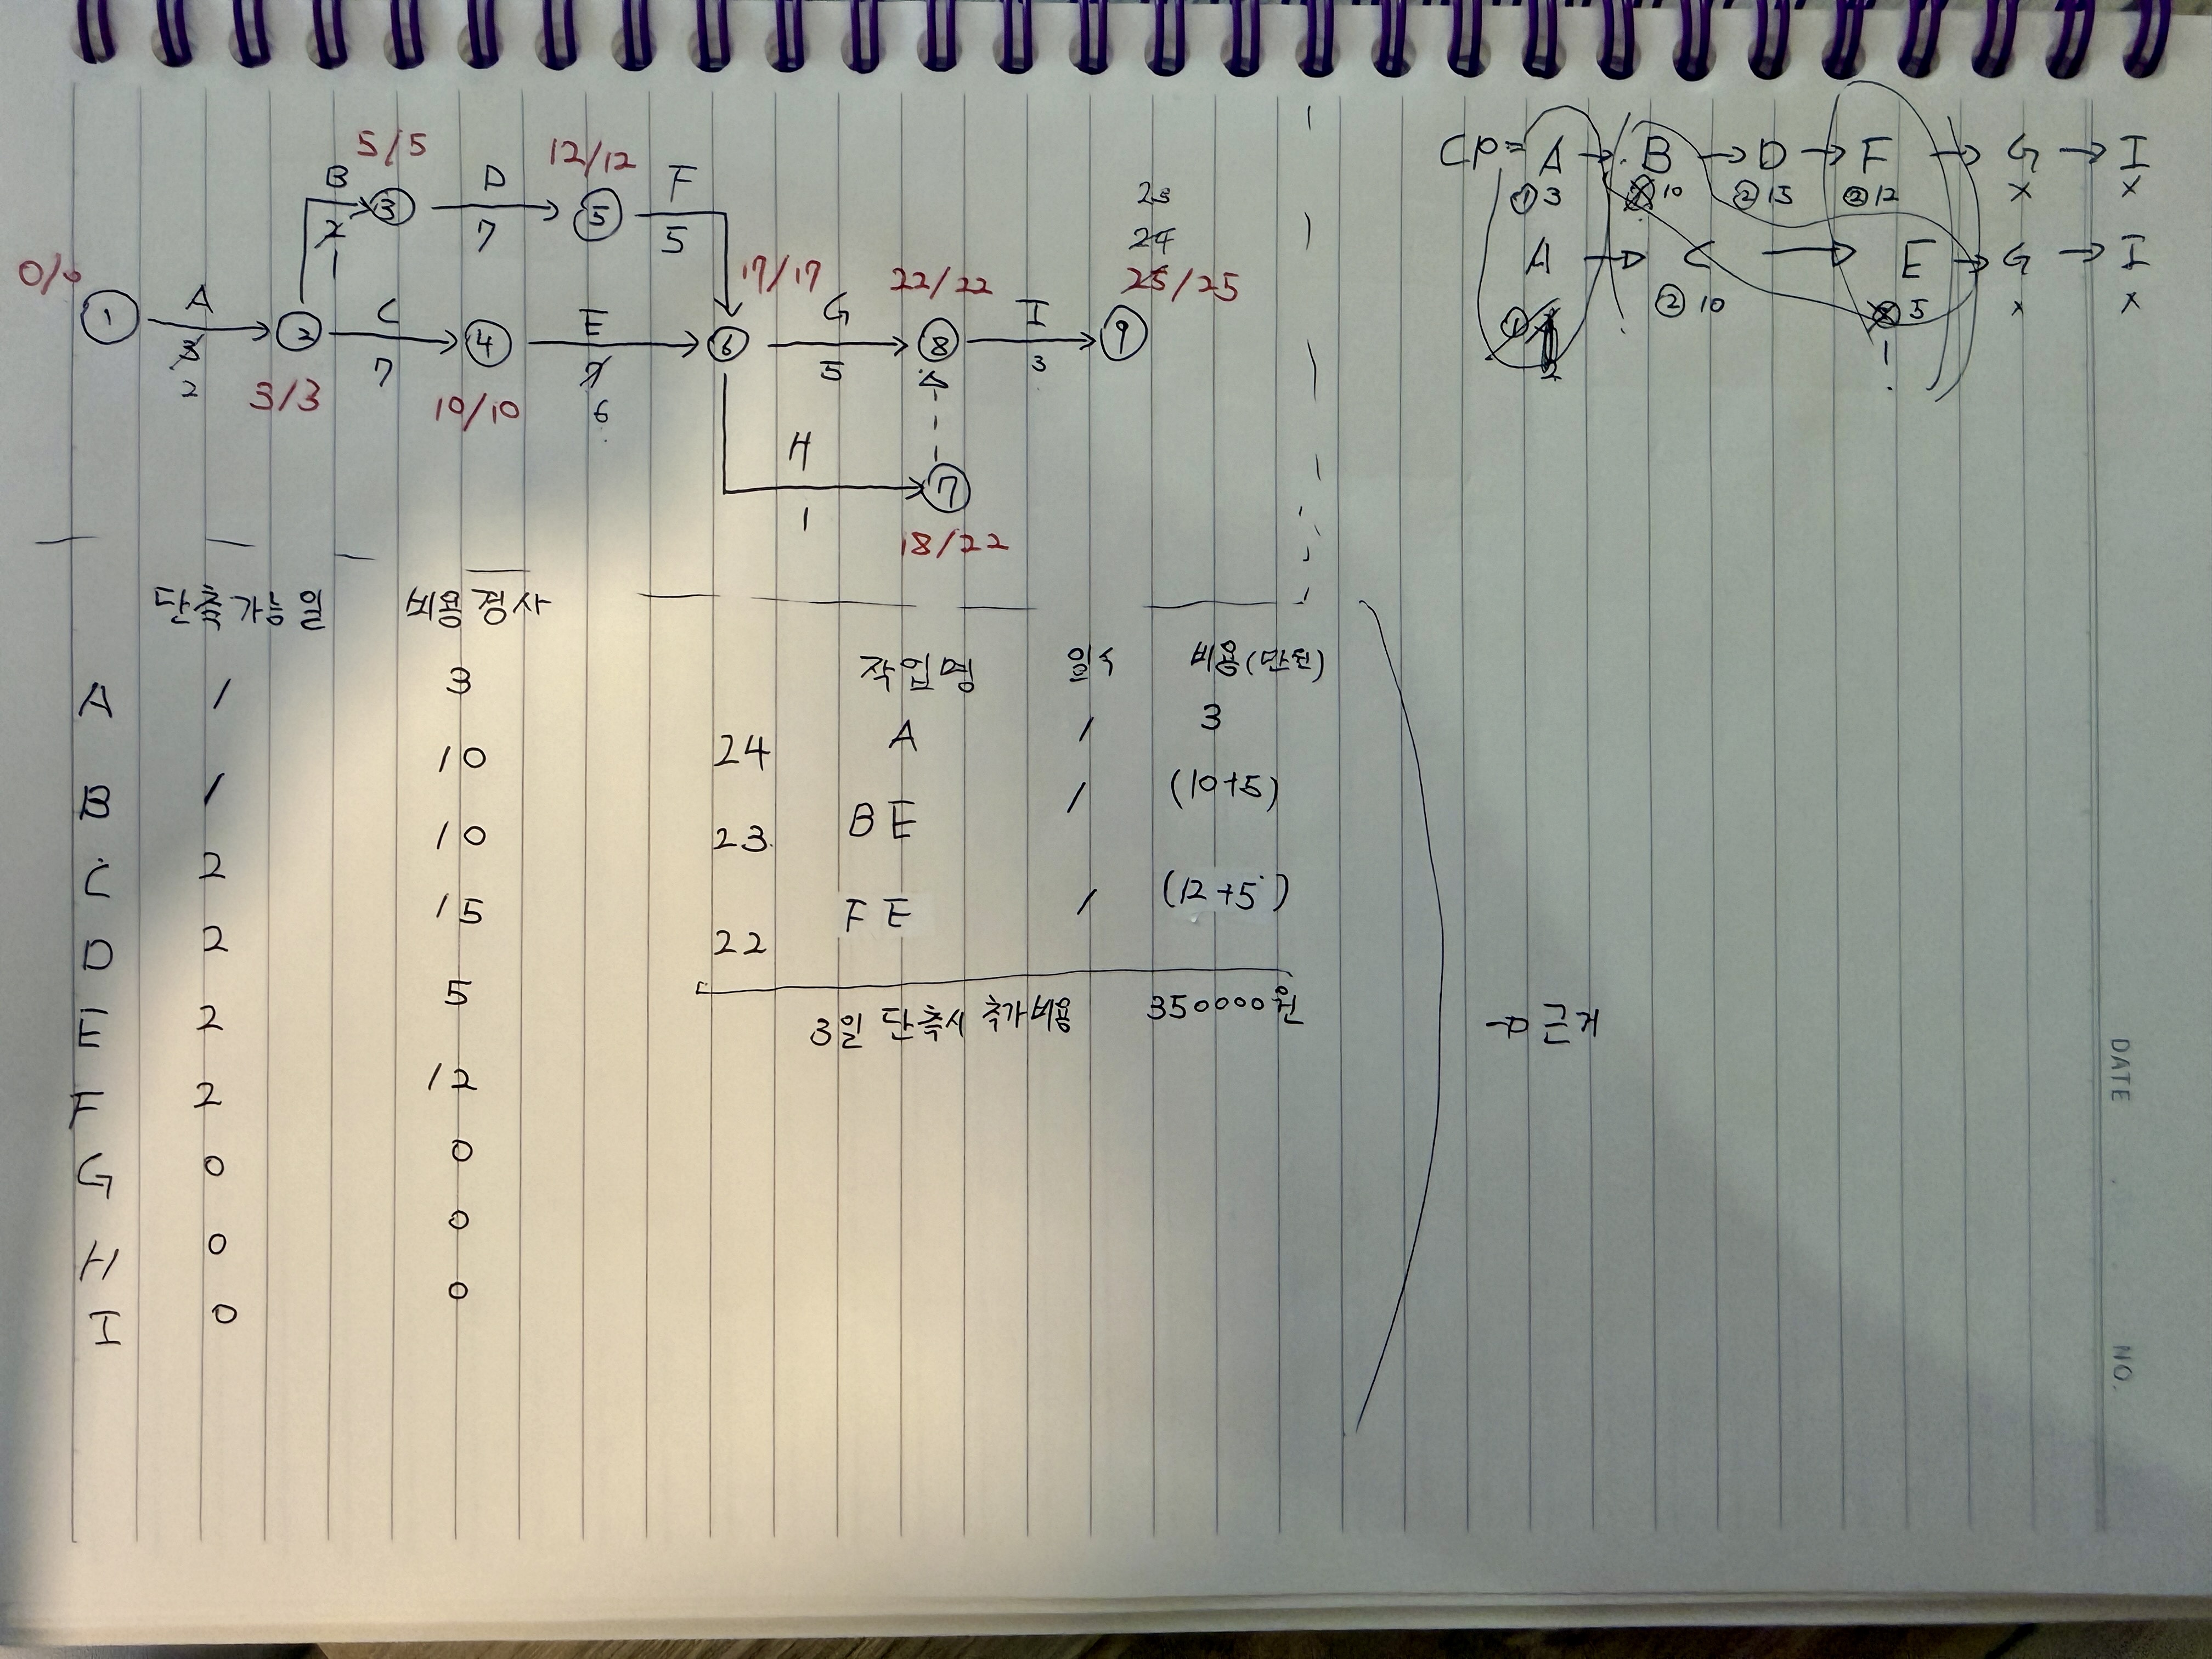 CP = A → B → D → F → G → I
① 3 10 ② 15 ② 12 x x
A → C → E → G → I
② 10 5 x x
1
2
5/5 12/12
B D F
③ ⑤
2 7 5
1
23
24
0/0 17/17 22/22 25/25
A C E G I
① ② ④ ⑥ ⑧ ⑨
3 7 7 5 3
2 3/3 10/10 6
H
⑦
1
18/22
단축가능일 비용경사
A 1 3
B 1 10
C 2 10
D 2 15
E 2 5
F 2 12
G 0 0
H 0 0
I 0 0
작업명 일수 비용(만원)
24 A 1 3
23 B E 1 (10+5)
22 F E 1 (12+5)
3일 단축시 추가비용 350000원
→ 근거
DATE
NO.